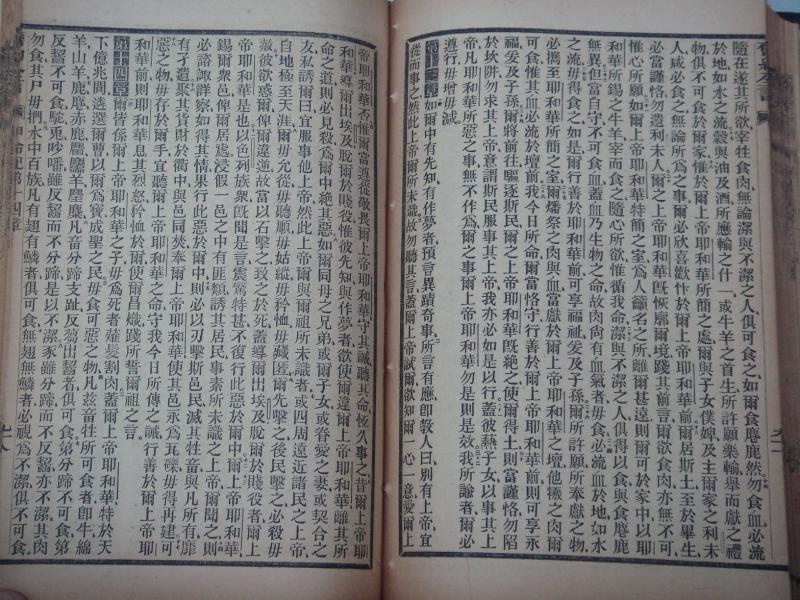 隨在遂其所欲宰牲食肉無論潔與不潔之人俱可食之如爾食麀鹿然勿食血必流
於地如水之流穀與油及酒所應輸之什一或牛羊之首生所許願樂輸舉而獻之禮
物俱不可食於爾家惟於爾上帝耶和華所簡之處爾與子女僕婢及主爾家之利未
人咸必食之無論所為之事爾必欣喜歡忭於爾上帝耶和華前爾居斯土至於畢生
必當謹恪勿遺利未人爾之上帝耶和華既恢廓爾境踐其前言爾欲食肉亦無不可
惟心所願如爾上帝耶和華特簡之室為人籲名之所離爾甚遠則爾可於家中以耶
和華所錫之牛羊宰而食之隨心所欲惟循我命潔與不潔之人俱得以食與食麀鹿
無異但當自守不可食血蓋血乃生物之命故肉尚有血氣者毋食必流血於地如水
之流毋得食之如是爾行善於耶和華前可享福祉爰及子孫爾所許願所奉獻之物
必攜至爾上帝耶和華所簡之室爾燔祭之肉與血當獻於爾上帝耶和華之壇他犧之肉爾
可食惟其血必流於壇前我今日所命爾當恪守行善於爾上帝耶和華前則可享永
福爰及子孫爾將前往驅逐斯民爾之上帝耶和華既絕之使爾得土則當謹恪勿陷
於坎阱勿求其上帝意謂斯民服事其上帝我亦必如是以行蓋彼爇子女以事其上
帝凡耶和華所惡之事無不作為爾之事爾上帝耶和華勿是則是效我所諭者爾必
遵行毋增毋減
第十三章 如爾中有先知有作夢者預言異蹟奇事所言有應卽敎人曰別有上帝宜
從而事之然此上帝爾所未識故勿聽其言蓋爾上帝試爾欲知爾一心一意愛爾上
帝耶和華否惟爾當遵從敬畏爾上帝耶和華守其誡聽其命恆久事之昔爾上帝耶
和華導爾出埃及脫爾於賤役惟彼先知與作夢者欲使爾違爾上帝耶和華離其所
命之道則必見殺為爾中絕其惡如爾同母之兄弟或爾子女或眷愛之妻或契合之
友私誘爾曰宜服事他上帝然此上帝爾與爾祖所未識者或四周遠近諸民之上帝
自地極至天涯爾毋允從毋聽順毋姑縱毋矜恤毋藏匿爾先擊之後民擊之必殺毋
赦彼欲惑爾俾爾違逆故當以石擊之致之於死蓋導爾出埃及脫爾於賤役者爾上
帝耶和華是也以色列族衆既聞是言震驚特甚不復行此惡於爾中爾上帝耶和華
錫爾衆邑俾爾居處浸假一邑之中有匪類誘其居民事素所未識之上帝爾聞之則
必諮諏詳察如得其情果行此惡於爾中則必以刃擊斯邑民滅其牲畜與凡所有靡
有孑遺聚其貨財於衢中與邑同焚奉爾上帝耶和華使其邑永為瓦礫毋得再建可
惡之物毋存於爾手宜聽爾上帝耶和華之命守我今日所傳之誡行善於爾上帝耶
和華前則耶和華息其烈怒矜恤於爾使爾昌熾踐所誓爾祖之言
第十四章 爾皆係爾上帝耶和華之子毋為死者薙髮割肉蓋爾上帝耶和華特於天
下億兆間遴選爾曹以爾為寶成聖之民毋食可惡之物凡茲畜牲所可食者卽牛綿
羊山羊鹿麀赤鹿 羊麈麋凡畜分蹄支趾反芻出齧者俱可食第分蹄不可食第
反齧者不可食駝兎 雖反齧而不分蹄是以不潔豕雖分蹄而不反齧亦不潔其肉
勿食其尸毋捫水中百族凡有翅有鱗者俱可食無翅無鱗者必視為不潔俱不可食